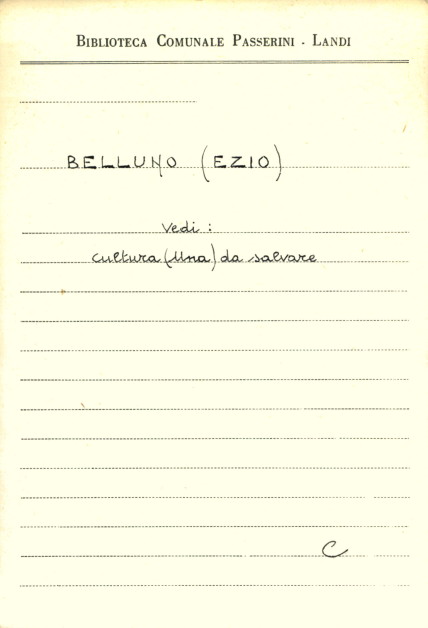 BIBLIOTECA COMUNALE PASSERINI - LANDI
BELLUNO (EZIO)
Vedi :
cultura (Una) da salvare
C